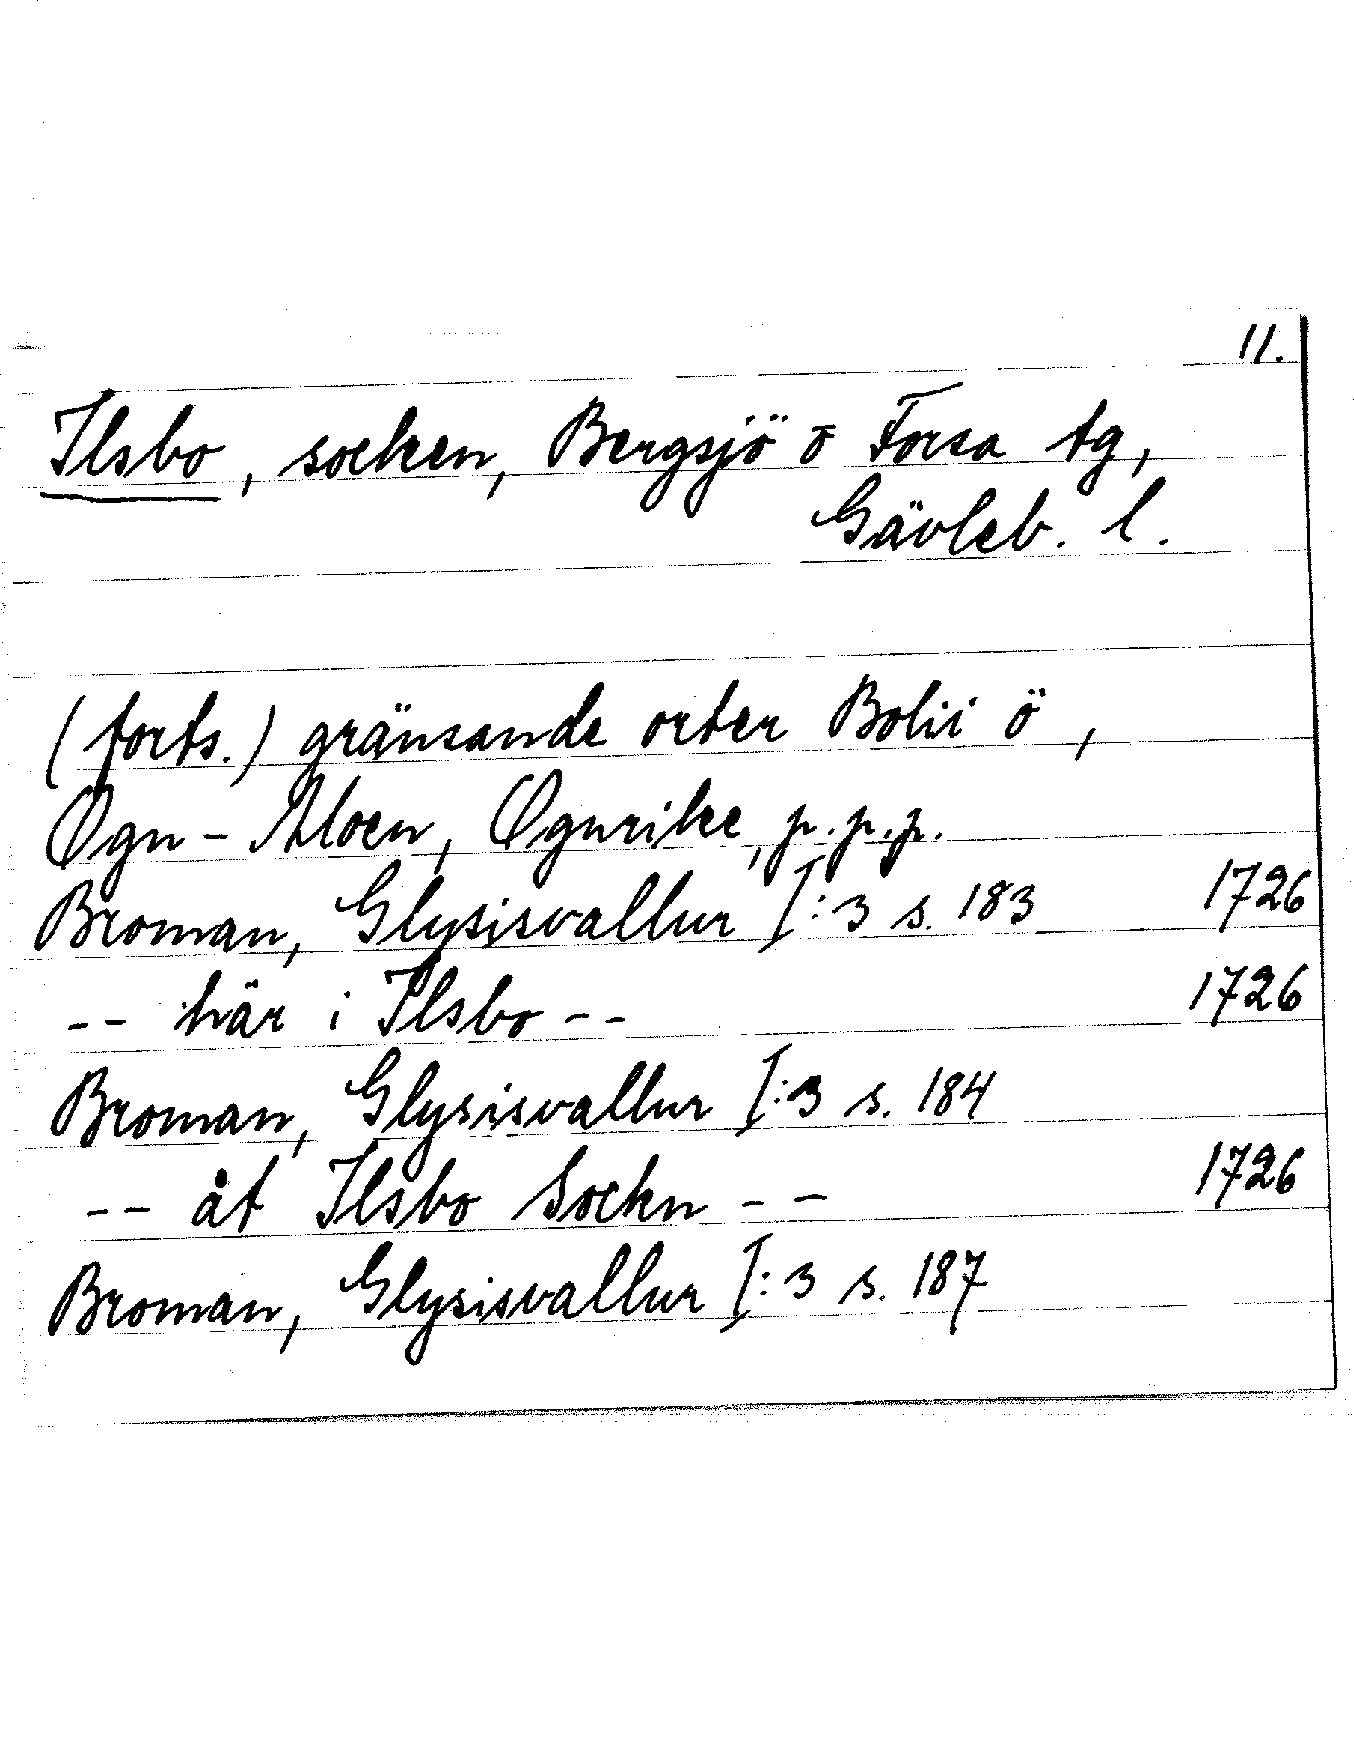 11.
Ilsbo, socken, Bergsjö o Forsa tg,
Gävleb. l.
(forts.) gränsande orter Bolii ö,
Øgn-Moen, Øgnrike, p.p.p.
Broman, Glysisvallur I:3 s. 183 1726
-- här i Ilsbo -- 1726
Broman, Glysisvallur I:3 s. 184
-- åt Ilsbo Sockn -- 1726
Broman, Glysisvallur I:3 s. 187